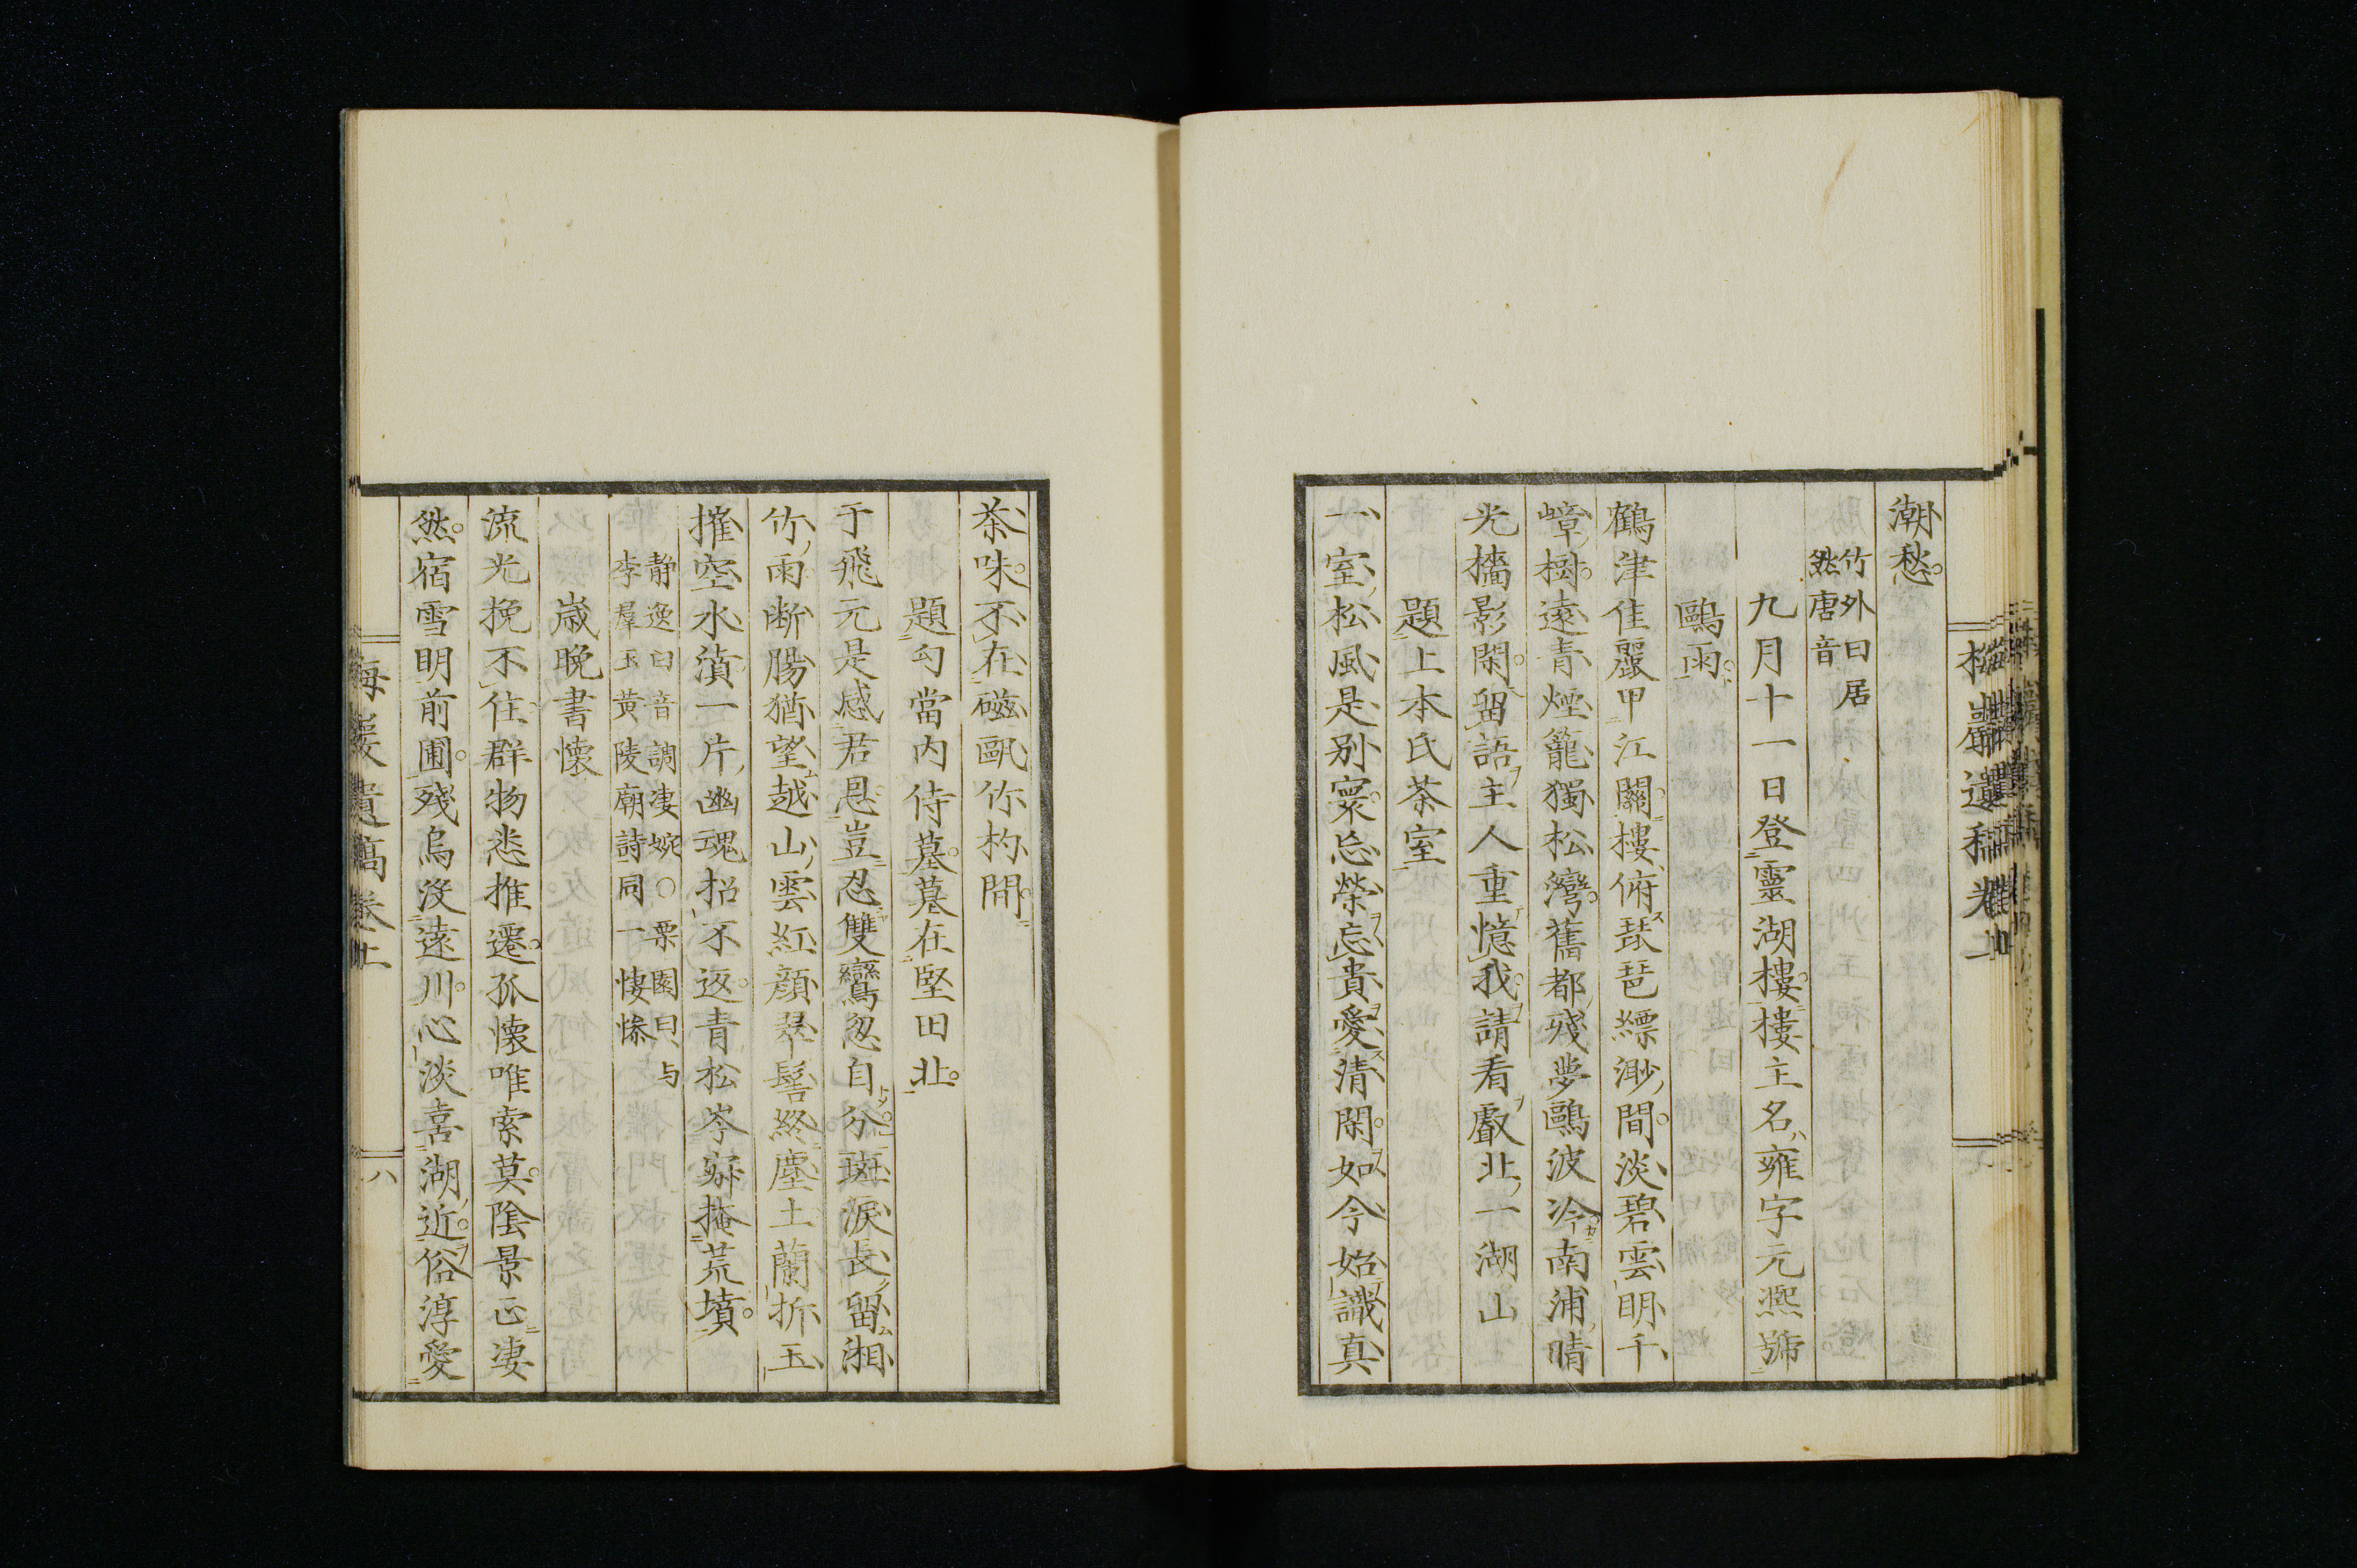 潮愁
竹外曰居
然唐音
九月十一日登靈湖樓樓主名雍字元熙號
鷗雨
鶴津佳麗甲江關樓俯琵琶縹渺間淡碧雲明千
嶂樹遠青煙籠獨松灣舊都殘夢鷗波冷南浦晴
光檣影閑留語主人重憶我請看叡北一湖山
題上本氏茶室
一室松風是别寰忘榮忘貴愛清閑如今始識真
茶味不在磁甌竹杓間
題勾當内侍墓墓在堅田北
于飛元是感君恩豈忍雙鸞忽自分斑淚長留湘
竹雨断腸猶望越山雲紅顔翠髻終塵土蘭折玉
摧空水濆一片幽魂招不返青松岑寂掩荒墳
静逸曰音調凄婉○栗園曰与
李羣玉黄陵廟詩同一悽惨
歳晚書懷
流光挽不住群物悉推遷孤懷唯索莫陰景正凄
然宿雪明前圃殘烏没遠川心淡喜湖近俗淳愛
遺稿卷上
八